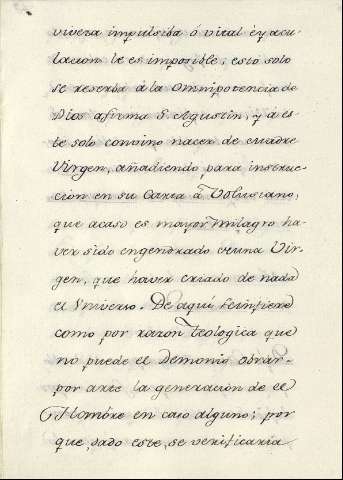 vivera impulsiba ó vital eyacu-
lacion le es imposible; esto solo
se reserba á la Omnipotencia de
Dios afirma S. Agustin, y á es-
te solo convino nacer de Madre
Virgen, añadiendo para instruc-
cion en su Carta á Volusiano,
que acaso es mayor Milagro ha-
ver sido engendrado de una Vir-
gen, que haver criado de nada
el Vniverso. De aqui se infiere
como por razon Teologica que
no puede el Demonio obrar
por arte la generacion de el
Hombre en caso alguno; por
que, dado este, se verificaria